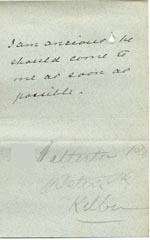 I am anxious he
should come to
me as soon as
possible.
Walterton Rd
Kilbu